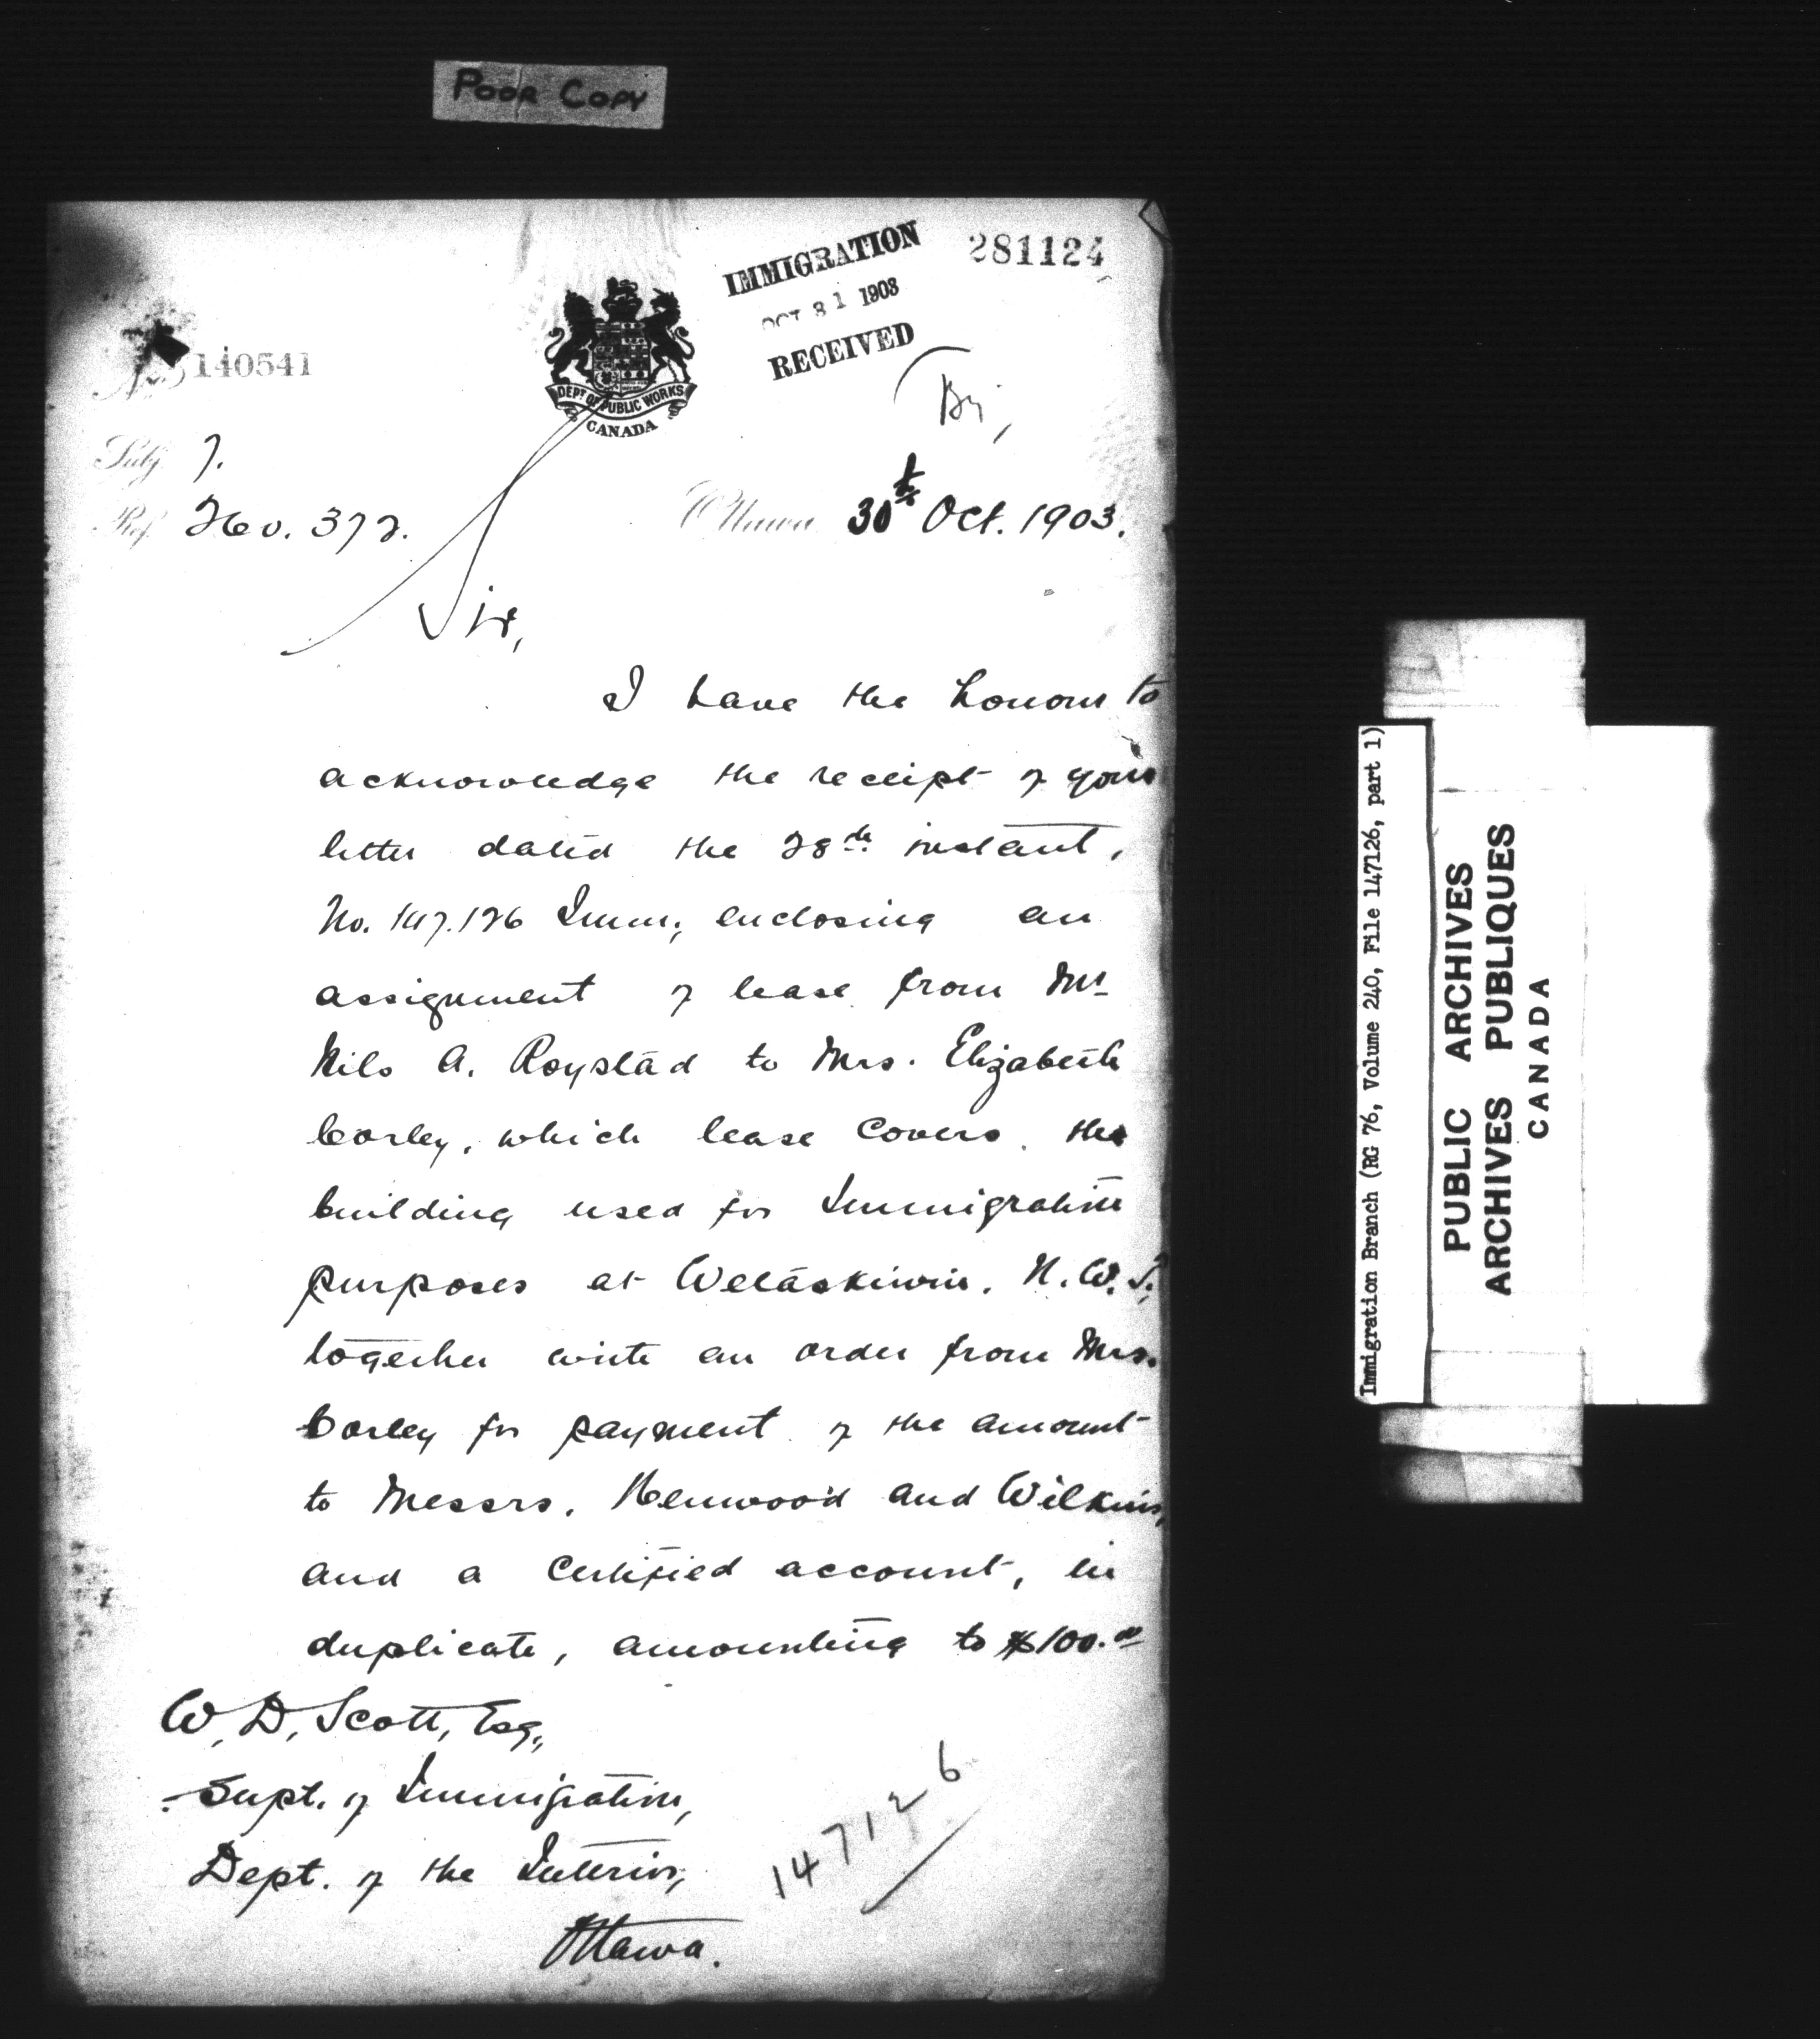 POOR COPY
281124
IMMIGRATION
OCT 31 1903
RECEIVED
No. 140541
DEPT OF PUBLIC WORKS
CANADA
Subj. 7.
Ref. 260. 372.
Ottawa 30th Oct. 1903.
Sir,
I have the honour to
acknowledge the receipt of your
letter dated the 28th instant,
No. 147.126 Imm, enclosing an
assignment of lease from Mr
Nils A. Roystad to Mrs. Elizabeth
Corley, which lease covers the
building used for Immigration
purposes at Wetaskiwin, N.W.T.,
together with an order from Mrs.
Corley for payment of the amount
to Messrs. Henwood and Wilkins,
and a certified account, in
duplicate, amounting to $100.00
W. D. Scott, Esq.,
Supt. of Immigration,
Dept. of the Interior,
Ottawa.
147126
Immigration Branch (RG 76, Volume 240, File 147126, part 1)
PUBLIC ARCHIVES
ARCHIVES PUBLIQUES
CANADA